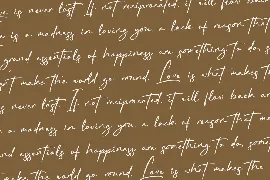 is never lost. If not reciprocated, it will flow back
is a madness in loving you, a lack of reason that
grand essentials of happiness are something to do, som
n't make the world go round. Love is what makes th
is never lost. If not reciprocated, it will flow back an
is a madness in loving you, a lack of reason that ma
and essentials of happiness are something to do, som
make the world go round. Love is what makes the